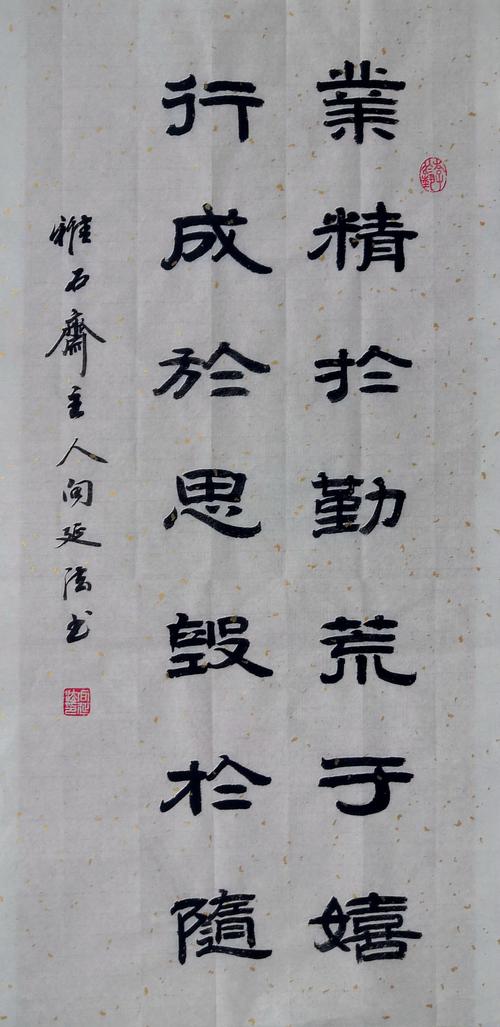 業精於勤荒于嬉
行成於思毀於隨
雅石齋主人向延法书